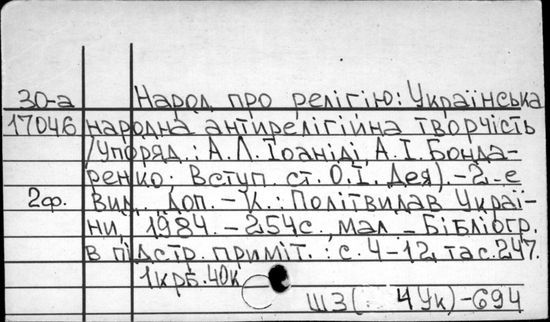 30-а Народ про релігію: Українська
17046 народна антирелігійна творчість
/Упоряд.: А.Л.Іоаніді, А.І.Бонда-
ренко; Вступ. ст. О.І. Дея). -2-е
2ф. вид., доп. - К.: Політвидав Украї-
ни, 1984. - 254с., мал. - Бібліогр.
в підстр. приміт.: с. 4-12, та с. 247.
1крб. 40к.
ШЗ( 4Ук)-694